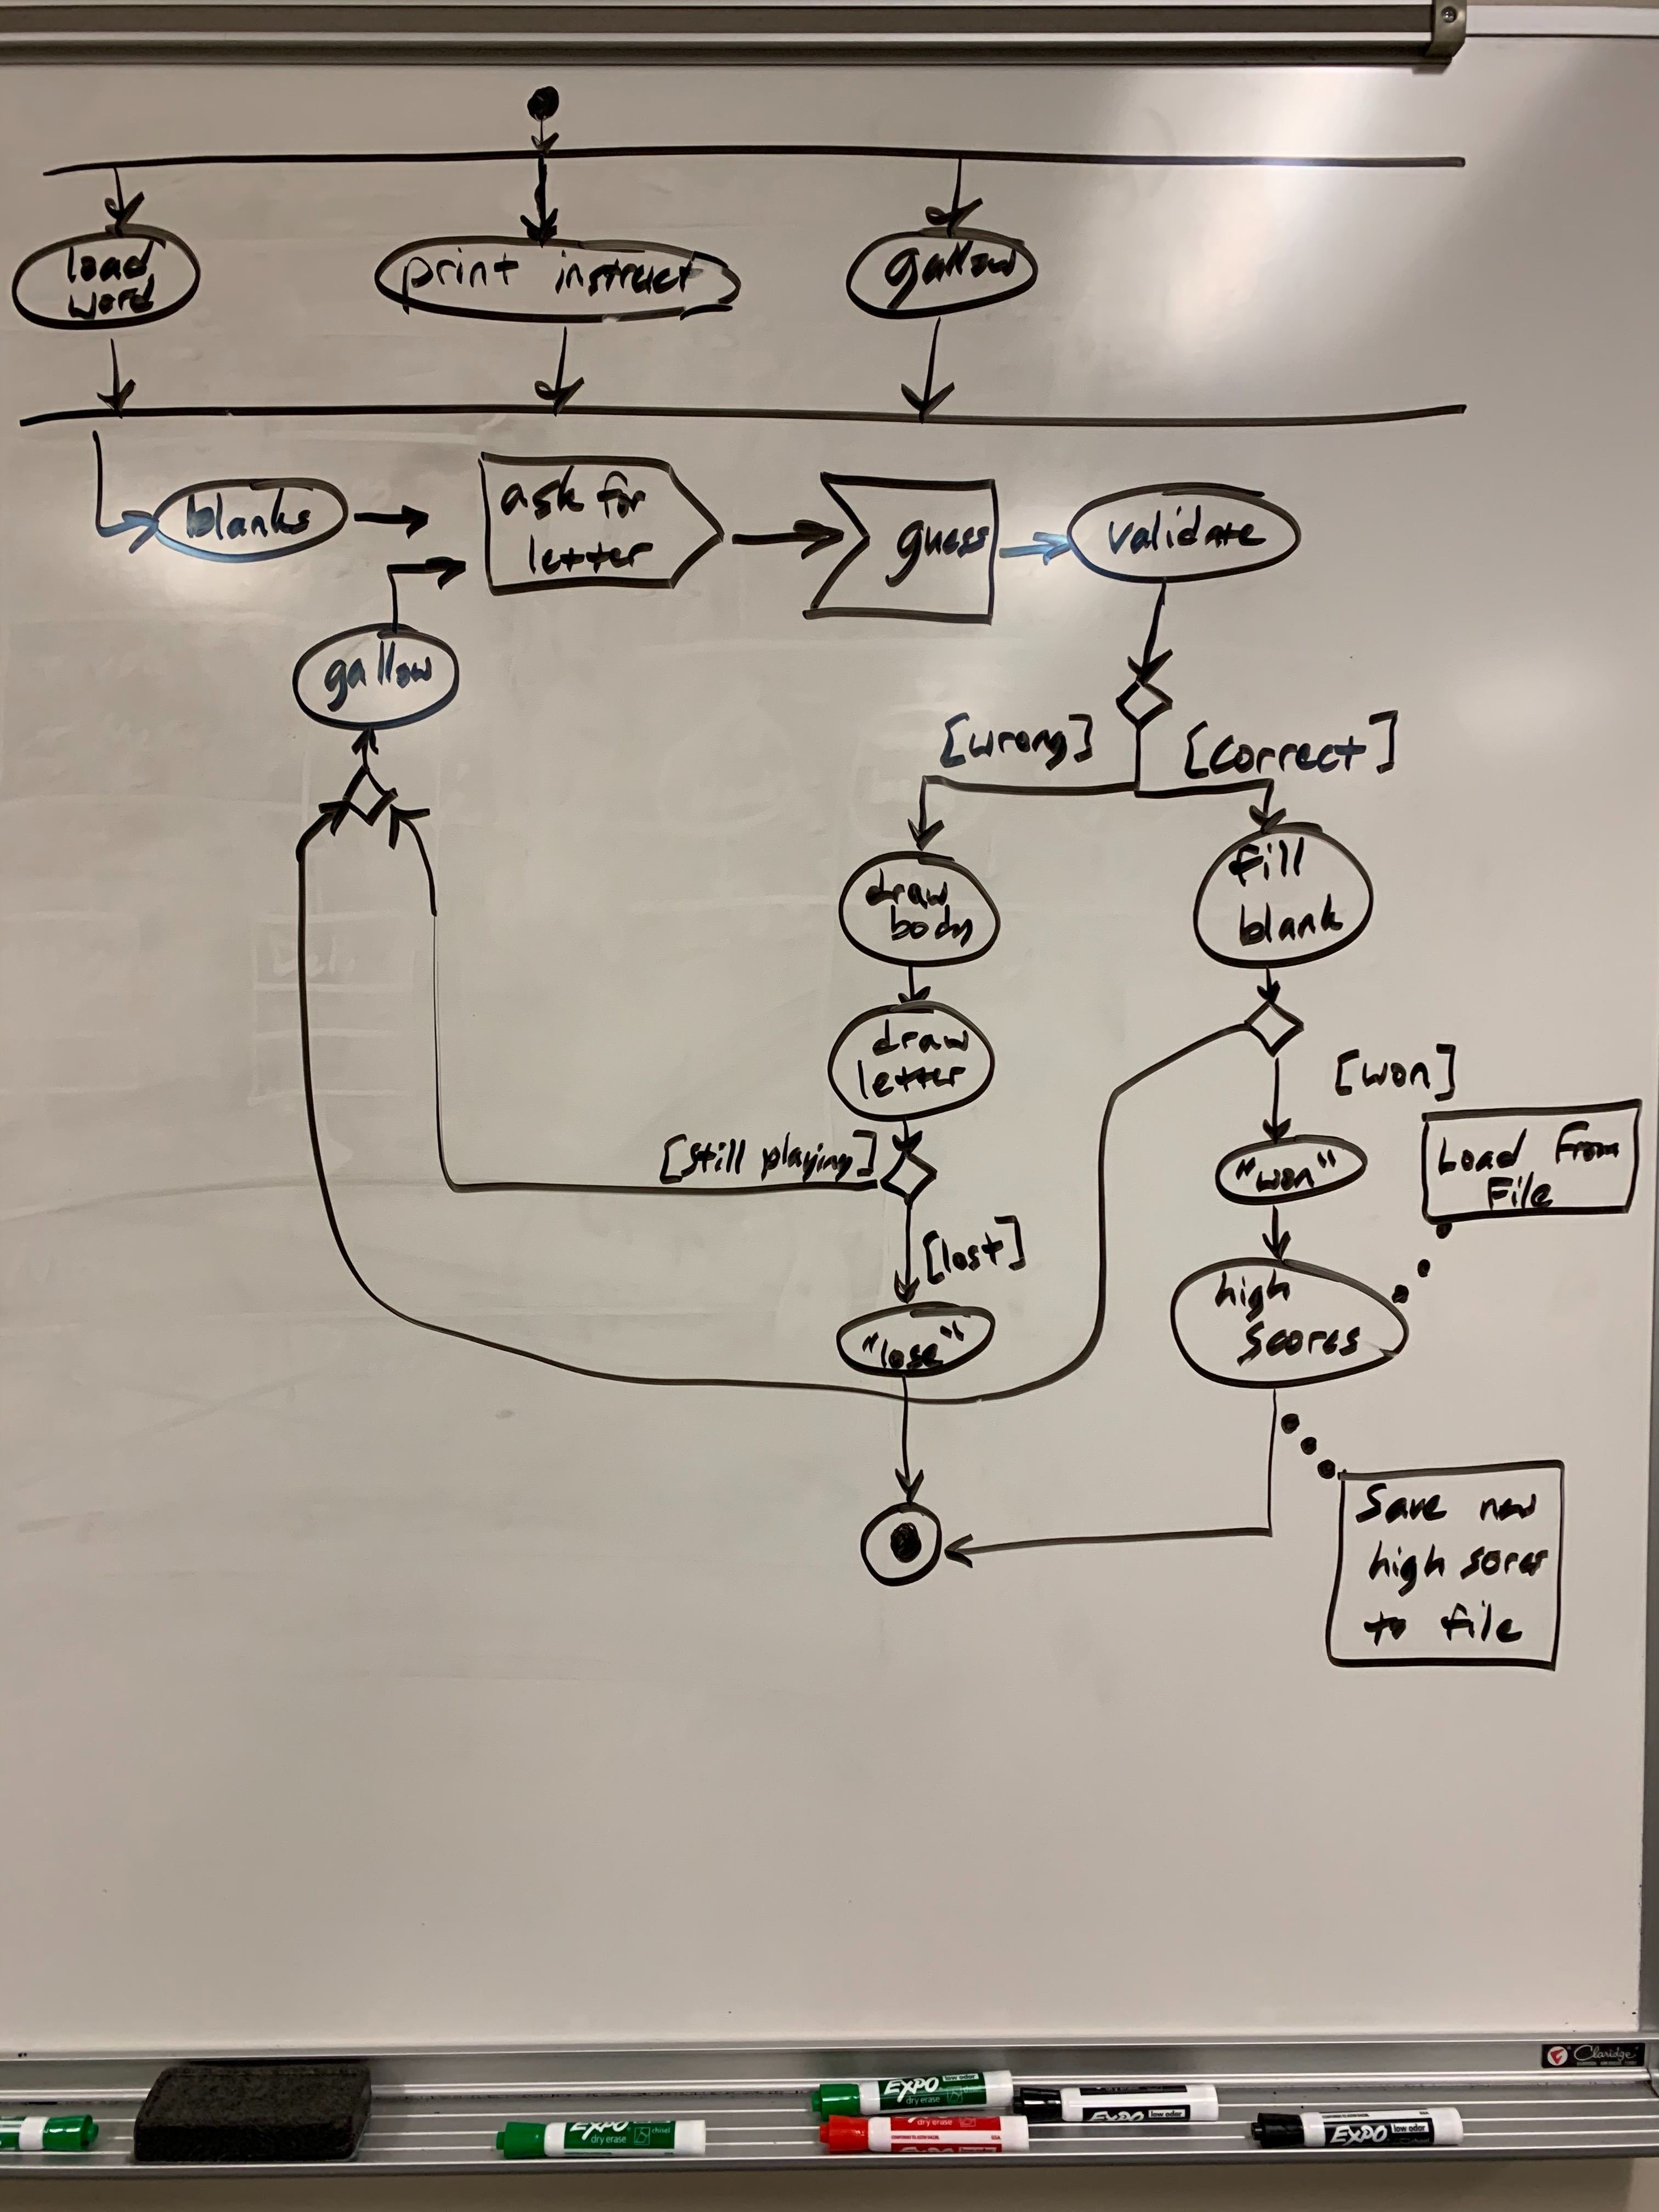 load
word
print instruct
gallow
blanks
ask for
letter
guess
validate
gallow
[wrong]
[correct]
draw
body
fill
blank
draw
letter
[still playing]
[won]
"won"
Load From
File
[lost]
"lose"
high
scores
Save new
high sores
to file
Claridge
EXPO low odor
dry erase
EXPO
dry erase chisel
dry erase
EXPO low odor
EXPO low odor